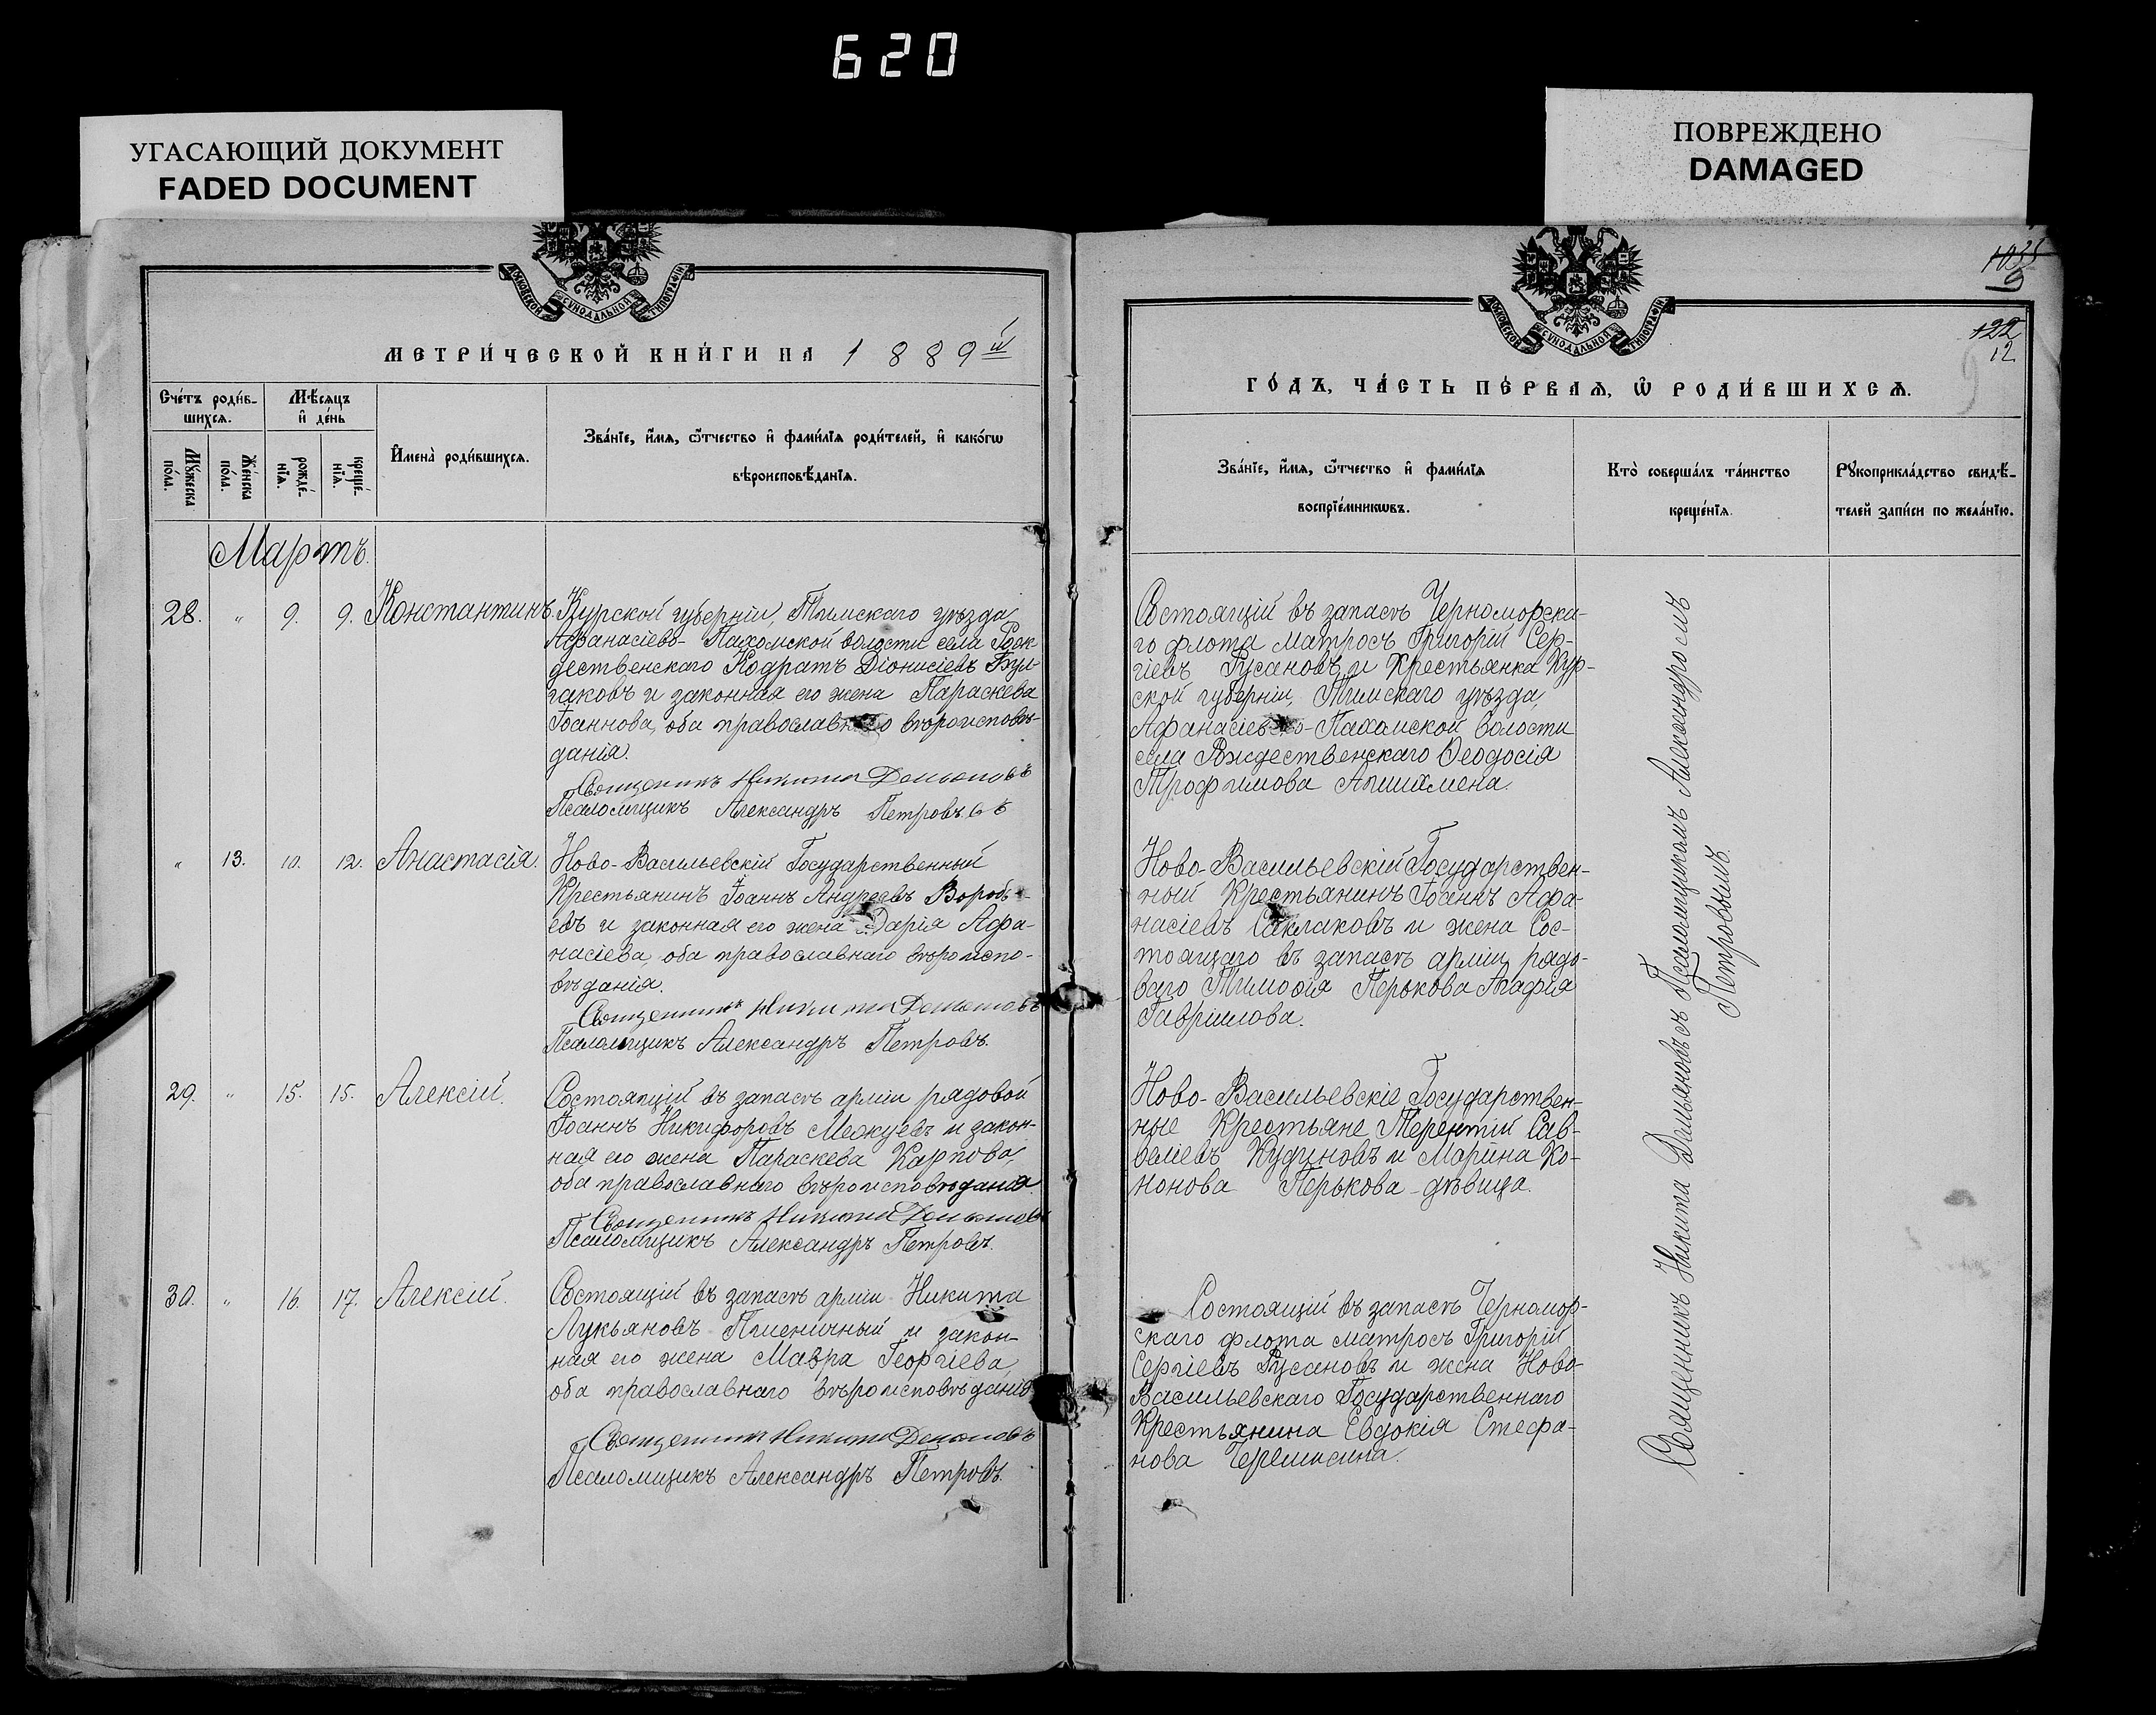 620
УГАСАЮЩИЙ ДОКУМЕНТ
FADED DOCUMENT
ПОВРЕЖДЕНО
DAMAGED
МОСКОВСКОЙ СУНОДАЛЬНОЙ ТИПОГРАФІИ
МЕТРИ́ЧЕСКОЙ КНИ́ГИ НА 1889 й
Сче́тъ роди́в-
шихсѧ.
Мѣ́сѧцъ
и҆ де́нь
И҆мена̀ роди́вшихсѧ.
Зва́нїе, и҆́мѧ, ѻ҆́тчество и҆ фами́лїѧ роди́телей, и҆ како́гѡ
вѣроисповѣ́данїѧ.
Мꙋ́жеска
по́ла.
Же́нска
по́ла.
рожде́-
нїѧ.
креще́-
нїѧ.
Мартъ.
28. " 9. 9. Константинъ.
Курской губерніи, Тимскаго уѣзда
Афанасіево-Пахомской волости села Рож-
дественскаго Кодратъ Діонисіевъ Бул-
гаковъ и законная его жена Параскева
Іоаннова, оба православнаго вѣроисповѣ-
данія.
Священникъ Никита Демьяновъ
Псаломщикъ Александръ Петровъ
" 13. 10. 12. Анастасія.
Ново-Васильевскій Государственный
Крестьянинъ Іоаннъ Андреевъ Воробь-
евъ и законная его жена Дарія Афа-
насіева, оба православнаго вѣроиспо-
вѣданія.
Священникъ Никита Демьяновъ
Псаломщикъ Александръ Петровъ.
29. " 15. 15. Алексій.
Состоящій въ запасѣ арміи рядовой
Іоаннъ Никифоровъ Межуевъ и закон-
ная его жена Параскева Карпова,
оба православнаго вѣроисповѣданія.
Священникъ Никита Демьяновъ
Псаломщикъ Александръ Петровъ.
30. " 16. 17. Алексій.
Состоящій въ запасѣ арміи Никита
Лукьяновъ Пшеничный и закон-
ная его жена Мавра Георгіева,
оба православнаго вѣроисповѣданія
Священникъ Никита Демьяновъ
Псаломщикъ Александръ Петровъ.
МОСКОВСКОЙ СУНОДАЛЬНОЙ ТИПОГРАФІИ
9
122
12
ГО́ДЪ, ЧА́СТЬ ПЕ́РВАѦ, Ѽ РОДИ́ВШИХСѦ.
Зва́нїе, и҆́мѧ, ѻ҆́тчество и҆ фами́лїѧ
воспрїе́мникѡвъ.
Кто̀ соверша́лъ та́инство
креще́нїѧ.
Рꙋкоприкла́дство свидѣ́-
телей за́писи по жела́нїю.
Состоящій въ запасѣ Черноморска-
го флота матросъ Григорій Сер-
гіевъ Русановъ и Крестьянка Кур-
ской губерніи, Тимскаго уѣзда,
Афанасіевско-Пахомской волости
села Рождественскаго Ѳеодосія
Трофимова
Ново-Васильевскій Государствен-
ный Крестьянинъ Іоаннъ Афа-
насіевъ Саклаковъ и жена Сос-
тоящаго въ запасѣ арміи рядо-
ваго Тимоѳія Перькова Агафія
Гавріилова.
Ново-Васильевскіе Государствен-
ные Крестьяне Терентій Сав-
веліевъ Кудиновъ и Марина Ко-
нонова Перькова-дѣвица.
Состоящій въ запасѣ Черномор-
скаго флота матросъ Григорій
Сергіевъ Русановъ и жена Ново-
Васильевскаго Государственнаго
Крестьянина Евдокія Стефа-
нова Черемисина.
Священникъ Никита Демьяновъ съ Псаломщикомъ Александромъ
Петровымъ.